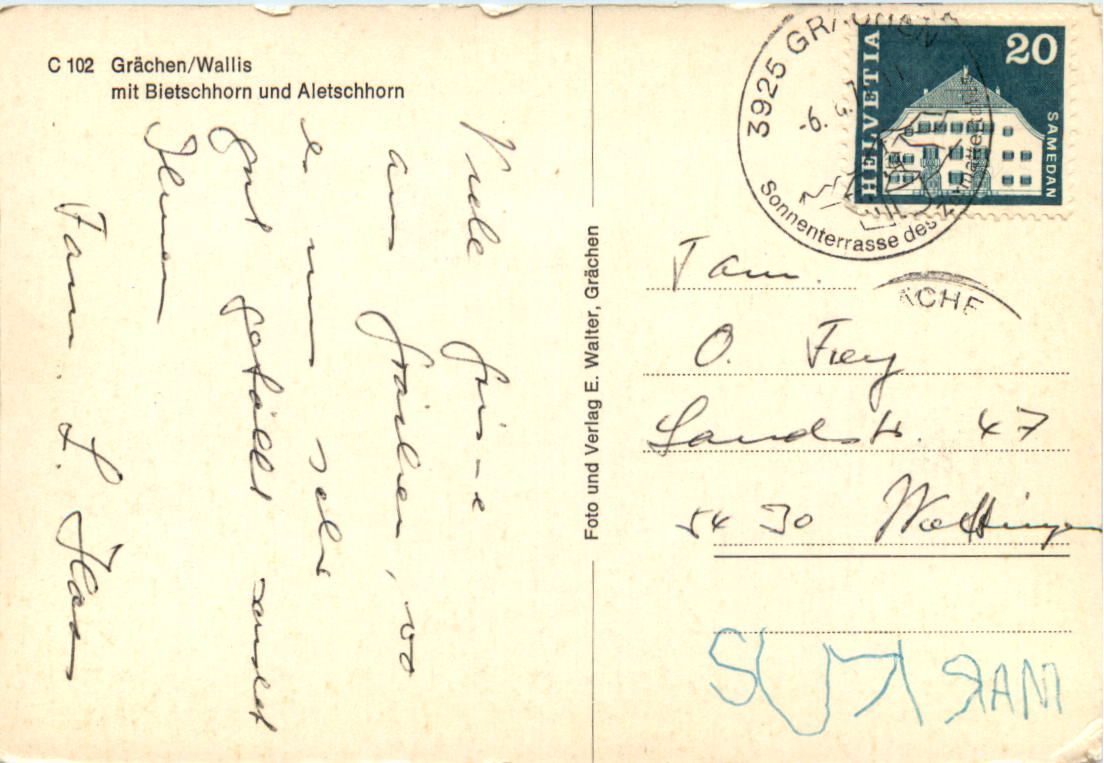 C 102 Grächen/Wallis
mit Bietschhorn und Aletschhorn
Viele Grüsse
aus Grächen, wo
es uns sehr
gut gefällt sendet
Ihnen
Fam. L. Haas
Foto und Verlag E. Walter, Grächen
3925 GRÄCHEN
-6.
Sonnenterrasse des Zermattertales
HELVETIA
20
SAMEDAN
ÄCHE
Fam.
O. Frey
Landstr. 47
5430 Wettingen